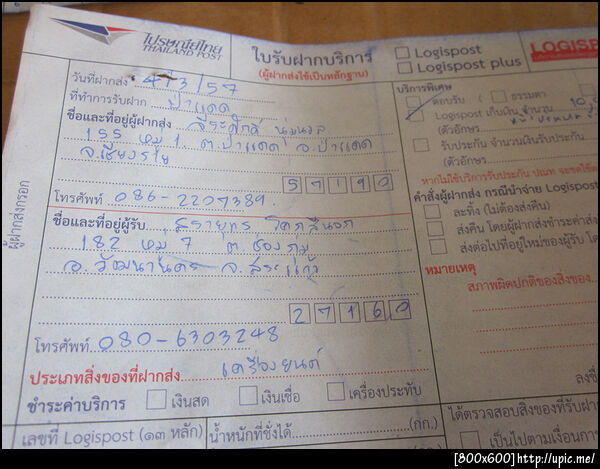 ไปรษณีย์ไทย
THAILAND POST
ใบรับฝากบริการ
(ผู้ฝากส่งใช้เป็นหลักฐาน)
Logispost
Logispost plus
LOGISP
วันที่ฝากส่ง 4/3/57
ที่ทำการรับฝาก ป่าแดด
ชื่อและที่อยู่ผู้ฝากส่ง
155 หมู่ 1 ต.ป่าแดด อ.ป่าแดด
จ.เชียงราย
57190
โทรศัพท์ 086-2207389
ชื่อและที่อยู่ผู้รับ สรายุทธ
182 หมู่ 7 ต.ช่องกุ่ม
อ.วัฒนานคร จ.สระแก้ว
27160
โทรศัพท์ 080-6303248
ประเภทสิ่งของที่ฝากส่ง เครื่องยนต์
ชำระค่าบริการ เงินสด เงินเชื่อ เครื่องประทับ
เลขที่ Logispost (๑๓ หลัก)
น้ำหนักที่ชั่งได้ (กก.)
(กก.
ผู้ฝากส่งกรอก
บริการพิเศษ
ตอบรับ ( ธรรมดา
Logispost เก็บเงิน จำนวน
(ตัวอักษร
รับประกัน จำนวนเงินรับประกัน
(ตัวอักษร
หากไม่ใช้บริการรับประกัน ปณท จะชดใช้
คำสั่งผู้ฝากส่ง กรณีนำจ่าย Logispost
ละทิ้ง (ไม่ต้องส่งคืน)
ส่งคืน โดยผู้ฝากส่งชำระค่าส่ง
ส่งต่อไปที่อยู่ใหม่ของผู้รับ โด
หมายเหตุ
สภาพผิดปกติของสิ่งของ
ลงชื่อ
ได้ตรวจสอบสิ่งของที่รับฝาก
เป็นไปตามเงื่อนการ
[800x600]http://upic.me/